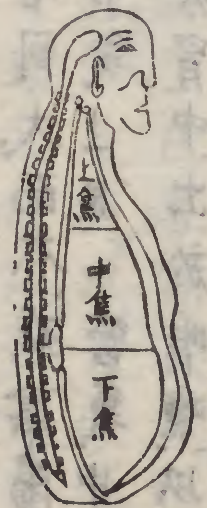 上焦
中焦
下焦